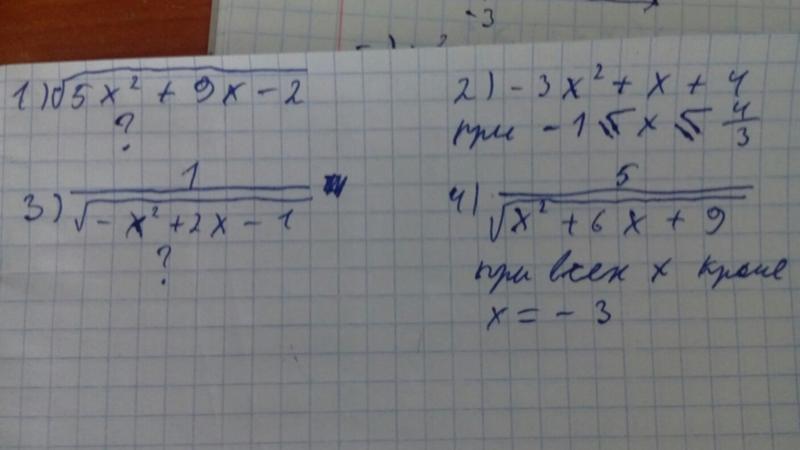 -3
1) √5x² + 9x - 2
?
2) - 3x² + x + 4
при - 1 ≤ x ≤ 4/3
3) 1/√-x² + 2x - 1
?
4) 5/√x² + 6x + 9
при всех x кроме
x = - 3